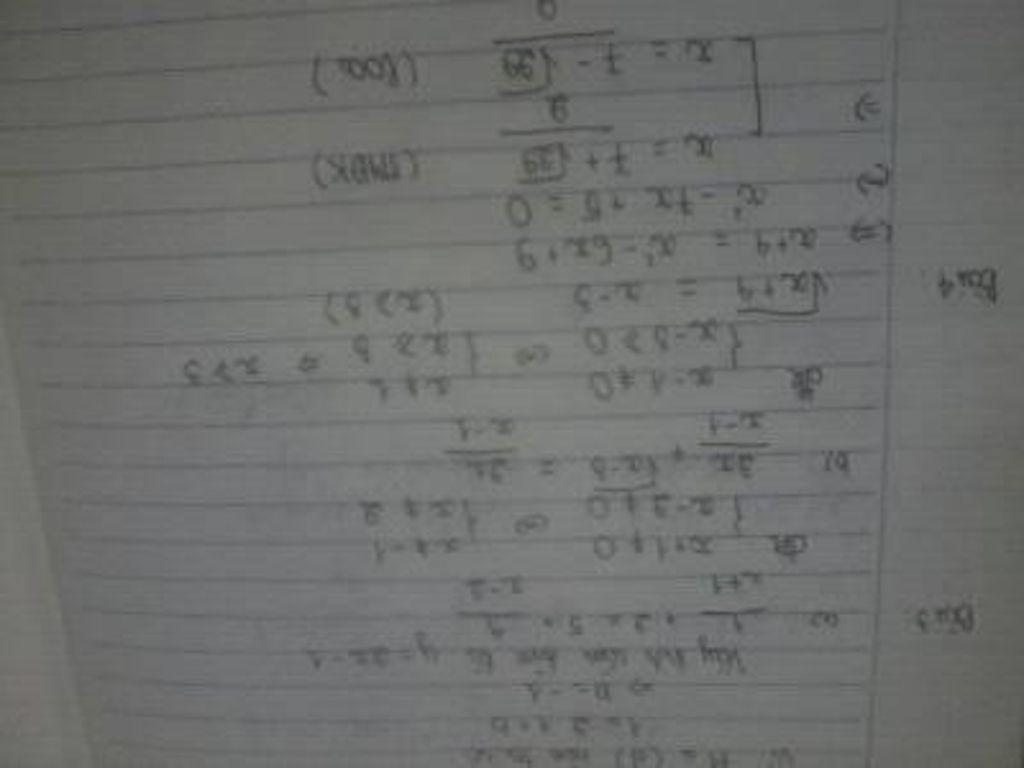 1 = 2 + b
=> b = -1
Vậy hàm số cần tìm là y = 2x - 1
Bài 3: a) 1/(x+1) + 2 = 5 + 1/(x-2)
ĐK { x+1 ≠ 0 <=> { x ≠ -1
x-2 ≠ 0 x ≠ 2
b) 2x/(x-1) + √(x-3) = 2x/(x-1)
ĐK { x-1 ≠ 0 <=> { x ≠ 1
x-3 ≥ 0 x ≥ 3 => x ≥ 3
Bài 4: √(x+4) = x-3 (x ≥ 3)
<=> x+4 = x² - 6x + 9
x² - 7x + 5 = 0
=> [ x = (7 + √29)/2 (TMĐK)
x = (7 - √29)/2 (loại)